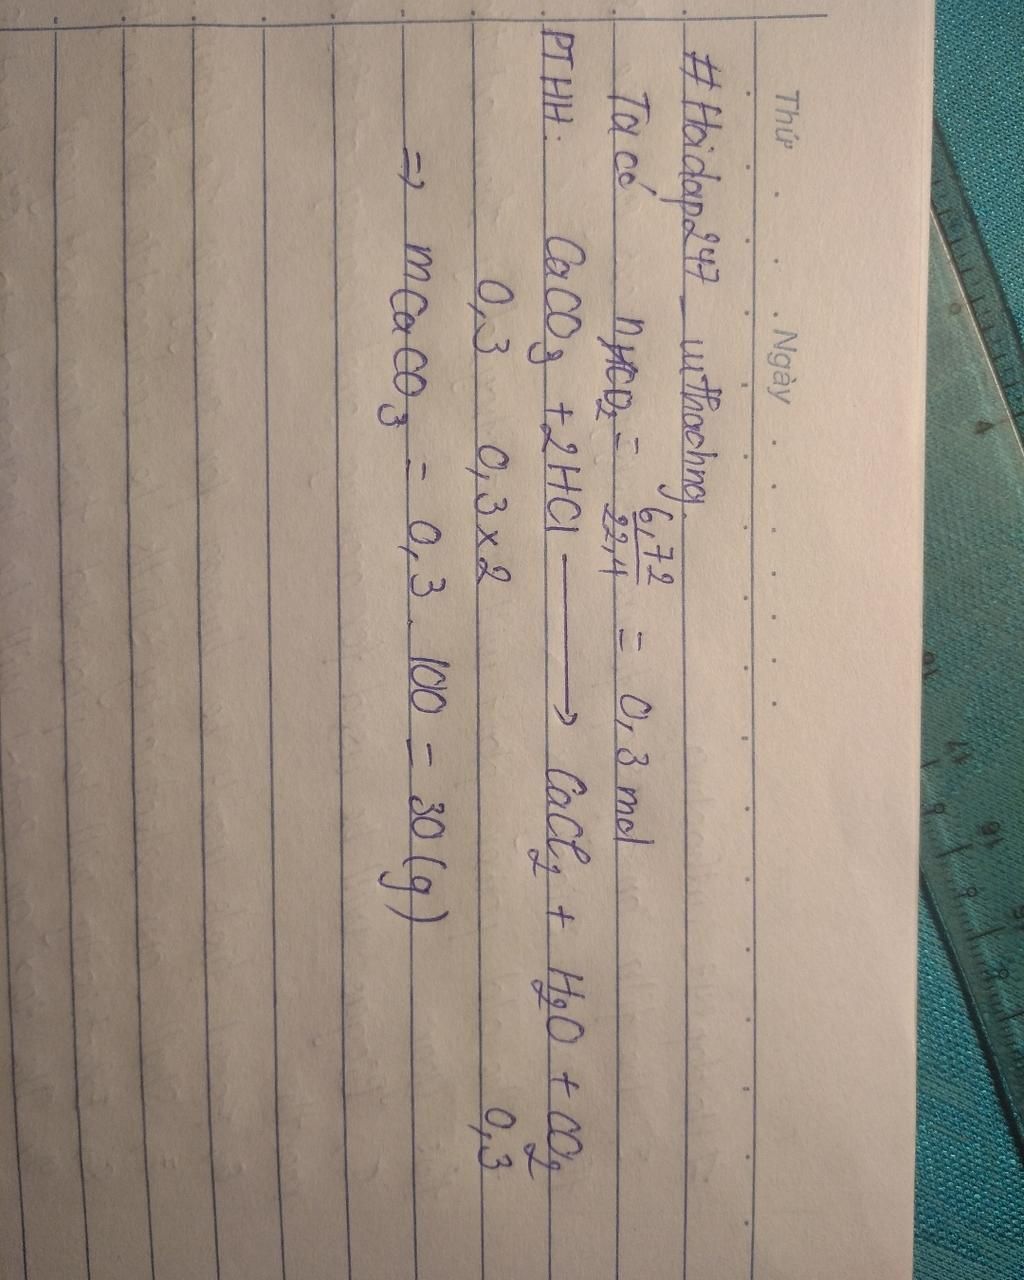 Thứ . . . . Ngày . . . . .
#Hoidap247_withachng.
Ta có nCO₂ = 6,72/22,4 = 0,3 mol
PTHH: CaCO₃ + 2HCl ⟶ CaCl₂ + H₂O + CO₂
0,3 0,3×2 0,3
⇒ mCaCO₃ = 0,3 . 100 = 30 (g)